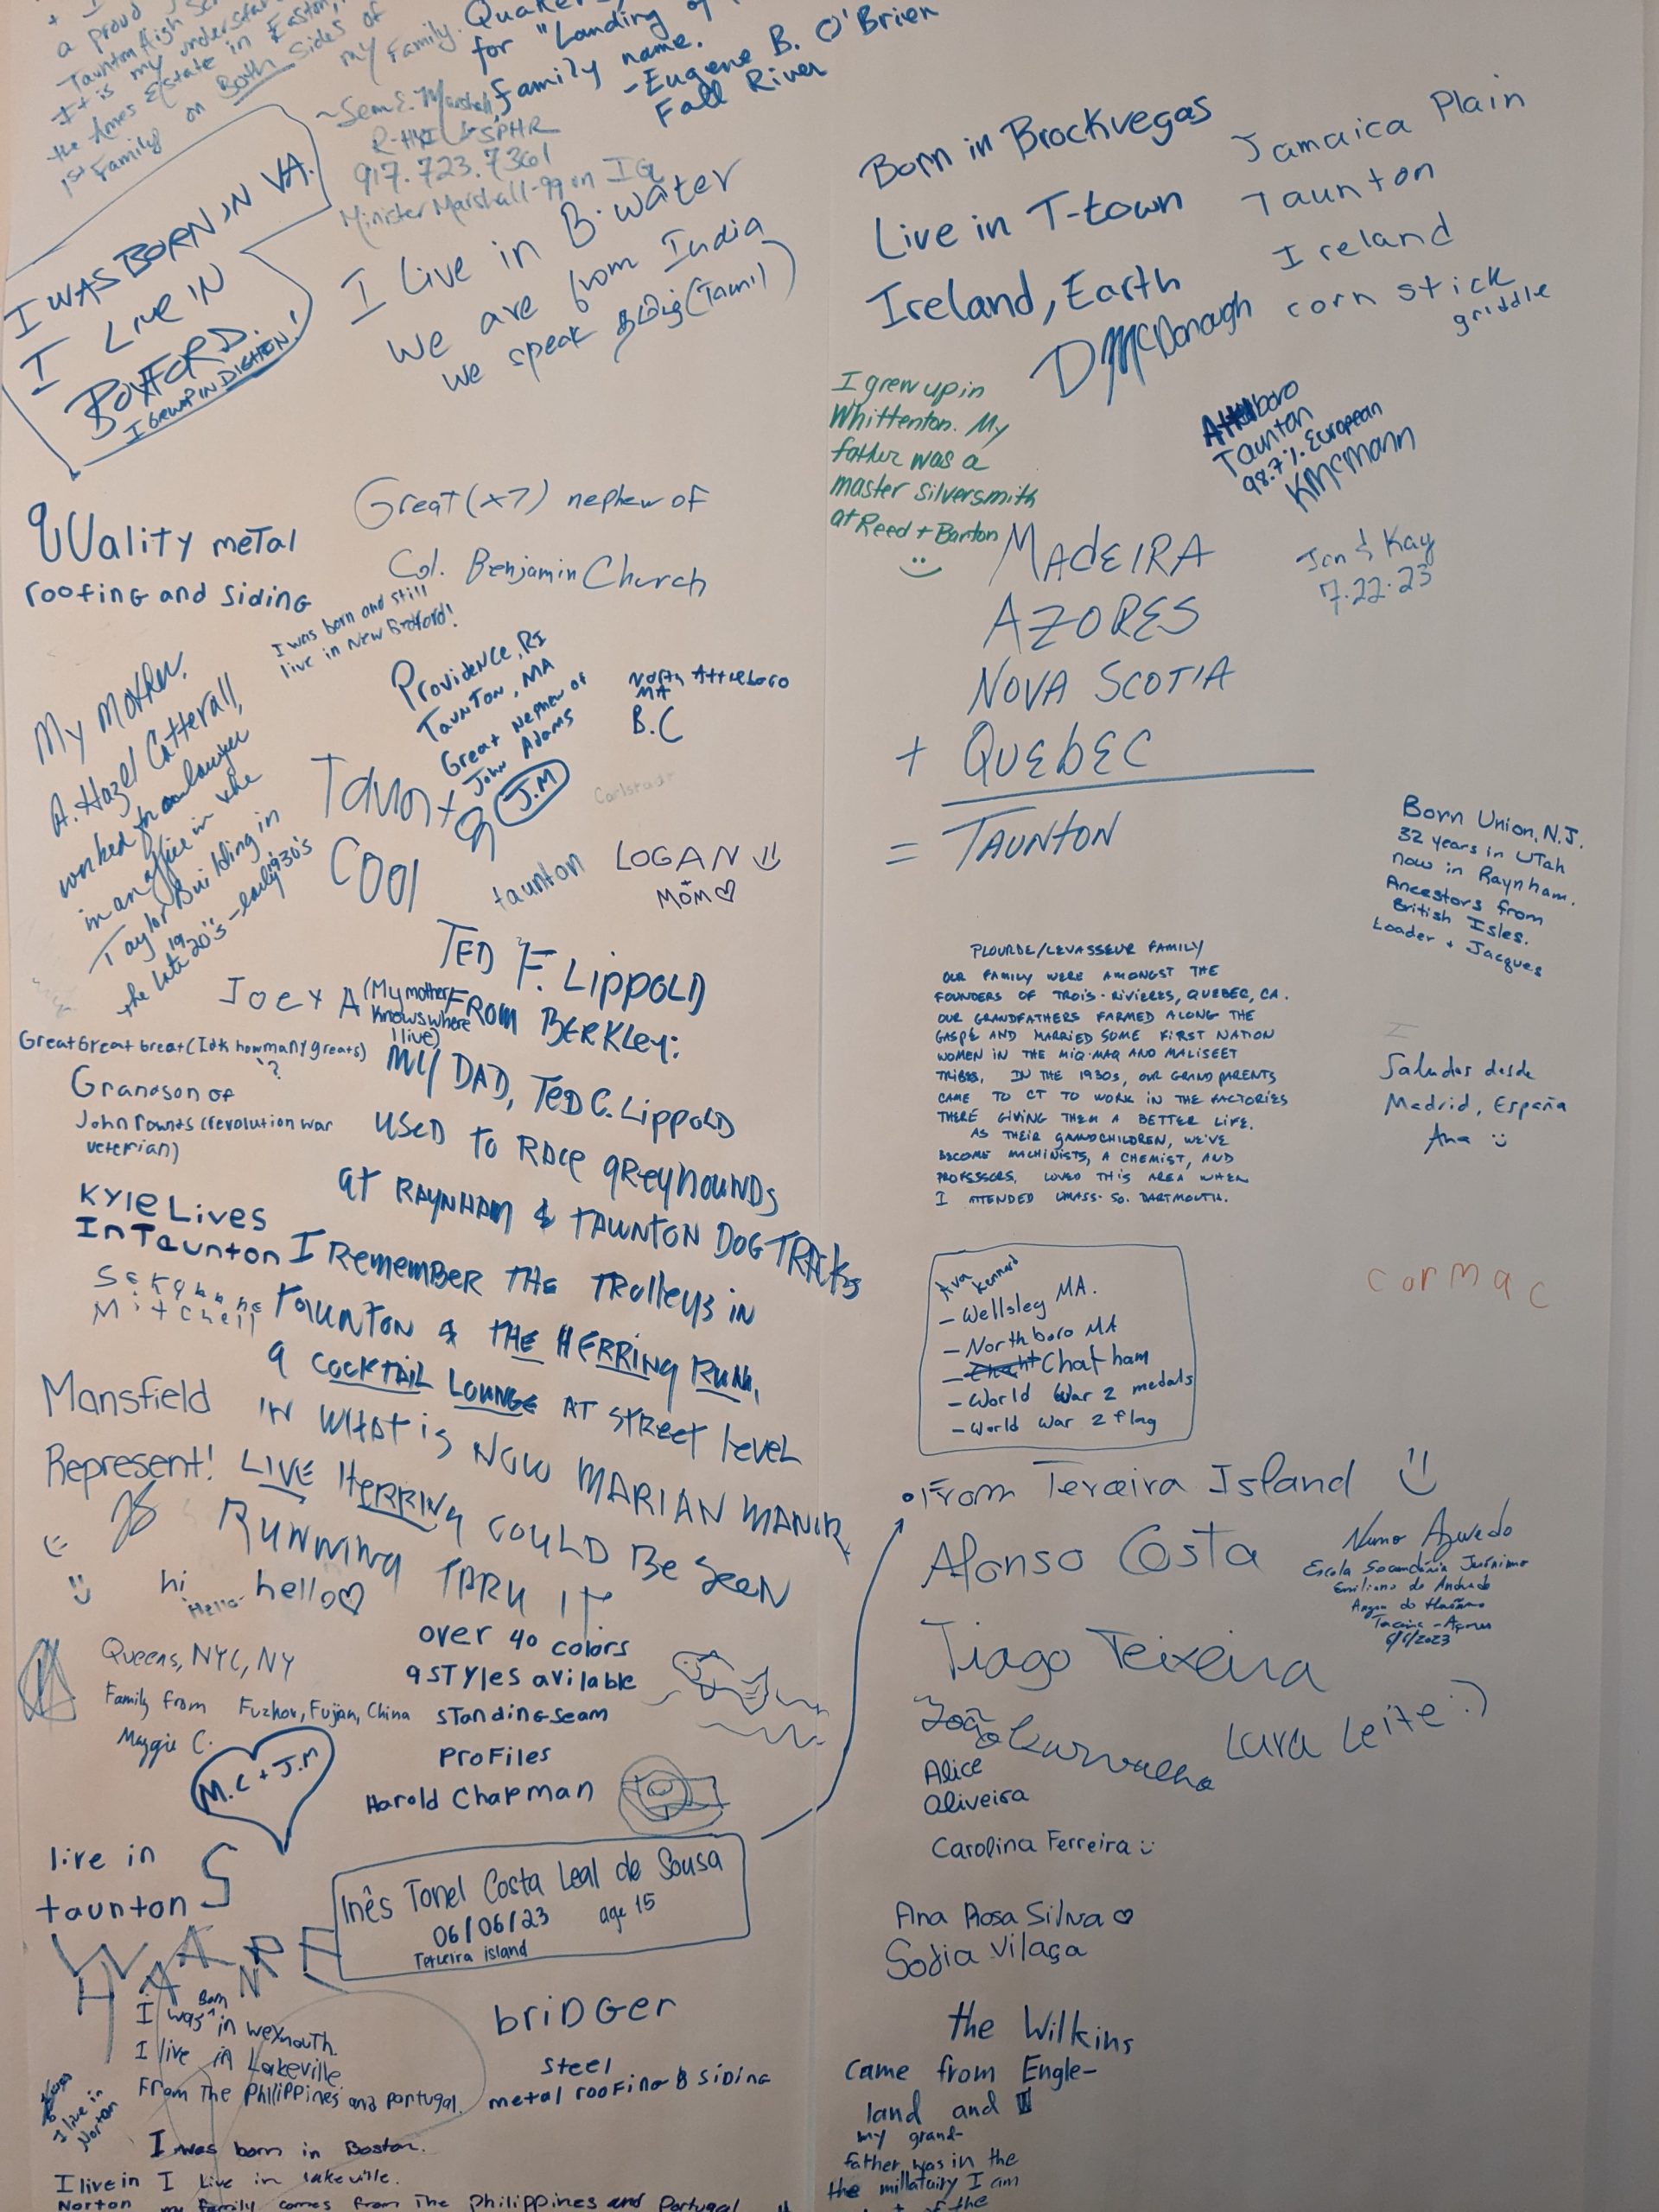 a proud
Taunton High
It is my understan
the Ames Estate in Easton,
1st Family on Both Sides of
my Family.
~Sean E. Marshall,
917.723.7361
Minister Marshall-99 on IG
Quaker
for "Landing of
family name.
-Eugene B. O'Brien
Fall River
I WAS BORN IN VA.
I LIVE IN
BOXFORD.
I GREW UP IN DIGHTON!
I live in B.water
We are from India
We speak தமிழ் (Tamil)
QUality meTal
roofing and Siding
Great (x7) nephew of
Col. Benjamin Church
I was born and still
live in New Bedford!
My Mother,
A. Hazel Catterall,
worked for a lawyer
in an office in the
Taylor Building in
the late 1920's - early 1930's
Providence, RI
Taunton, MA
Great Nephew of
John Adams
J.M
North Attleboro
MA
B.C
Carlstadt
Cool
taunton
LOGAN
+
MOM ♡
TED F. LIPPOLD
FROM BERKLEY:
MY DAD, TED C. LIPPOLD
USED TO RACE GREYHOUNDS
AT RAYNHAM & TAUNTON DOG TRACKS
I REMEMBER THE TROLLEYS IN
TAUNTON & THE HERRING RUN,
A COCKTAIL LOUNGE AT STREET LEVEL
IN WHAT IS NOW MARIAN MANOR
LIVE HERRING COULD BE SEEN
RUNNING THRU IT
Joey A (My mother
knows where
I live)
Great Great Great (Idk how many greats)
?
Grandson of
veterian)
Kyle Lives
In Taunton
Mitchell
Mansfield
Represent!
hi
Hello
hello♡
Queens, NYC, NY
Family from Fuzhou, Fujian, China
Maggie C.
M.C + J.M
over 40 colors
9 STYles avilable
STandinG Seam
ProFiles
Harold Chapman
live in
taunton
Inês Tonel Costa Leal de Sousa
06/06/23 age 15
Terceira island
I was Born in weymouth.
I live in Lakeville
From The Philippines and Portugal.
I live in
Norton
briDGer
Steel
metal roofinG & SiDinG
I was born in Boston.
I live in
Norton
I Live in lakeville.
my family comes from The Philippines and Portugal
Born in Brockvegas
Live in T-town
Ireland, Earth
D McDonagh
Jamaica Plain
Taunton
Ireland
corn stick
griddle
I grew up in
Whittenton. My
father was a
master silversmith
at Reed + Barton
Attleboro
Taunton
98.7% European
KMcMann
Jon & Kay
7.22.23
MADEIRA
AZORES
NOVA SCOTIA
+ QUEBEC
= TAUNTON
Born Union, N.J.
32 years in Utah
now in Raynham.
Ancestors from
British Isles.
Loader + Jacques
PLOURDE/LEVASSEUR FAMILY
OUR FAMILY WERE AMONGST THE
FOUNDERS OF TROIS-RIVIERES, QUEBEC, CA.
OUR GRANDFATHERS FARMED ALONG THE
GASPÉ AND MARRIED SOME FIRST NATION
WOMEN IN THE MIQ-MAQ AND MALISEET
TRIBES. IN THE 1930s, OUR GRANDPARENTS
CAME TO CT TO WORK IN THE FACTORIES
THERE GIVING THEM A BETTER LIFE.
AS THEIR GRANDCHILDREN, WE'VE
BECOME MACHINISTS, A CHEMIST, AND
PROFESSORS. LOVED THIS AREA WHEN
I ATTENDED UMASS-SO. DARTMOUTH.
Saludos desde
Madrid, España
Ana
cormac
Ava
Kennard
- Wellsley MA.
- Northboro MA
- Chatham
- World War 2 medals
- World War 2 flag
•From Terceira Island
Afonso Costa
Nuno Azevedo
Escola Secundária Jerónimo
Emiliano de Andrade
Angra do Heroísmo
Terceira - Açores
6/6/2023
Tiago Teixeira
João Carvalho
Lara Leite :)
Alice
Oliveira
Carolina Ferreira
Ana Rosa Silva ♡
Sofia Vilaça
the Wilkins
came from Engle-
land and
my grand-
father was in the
the millatairy I am
of the